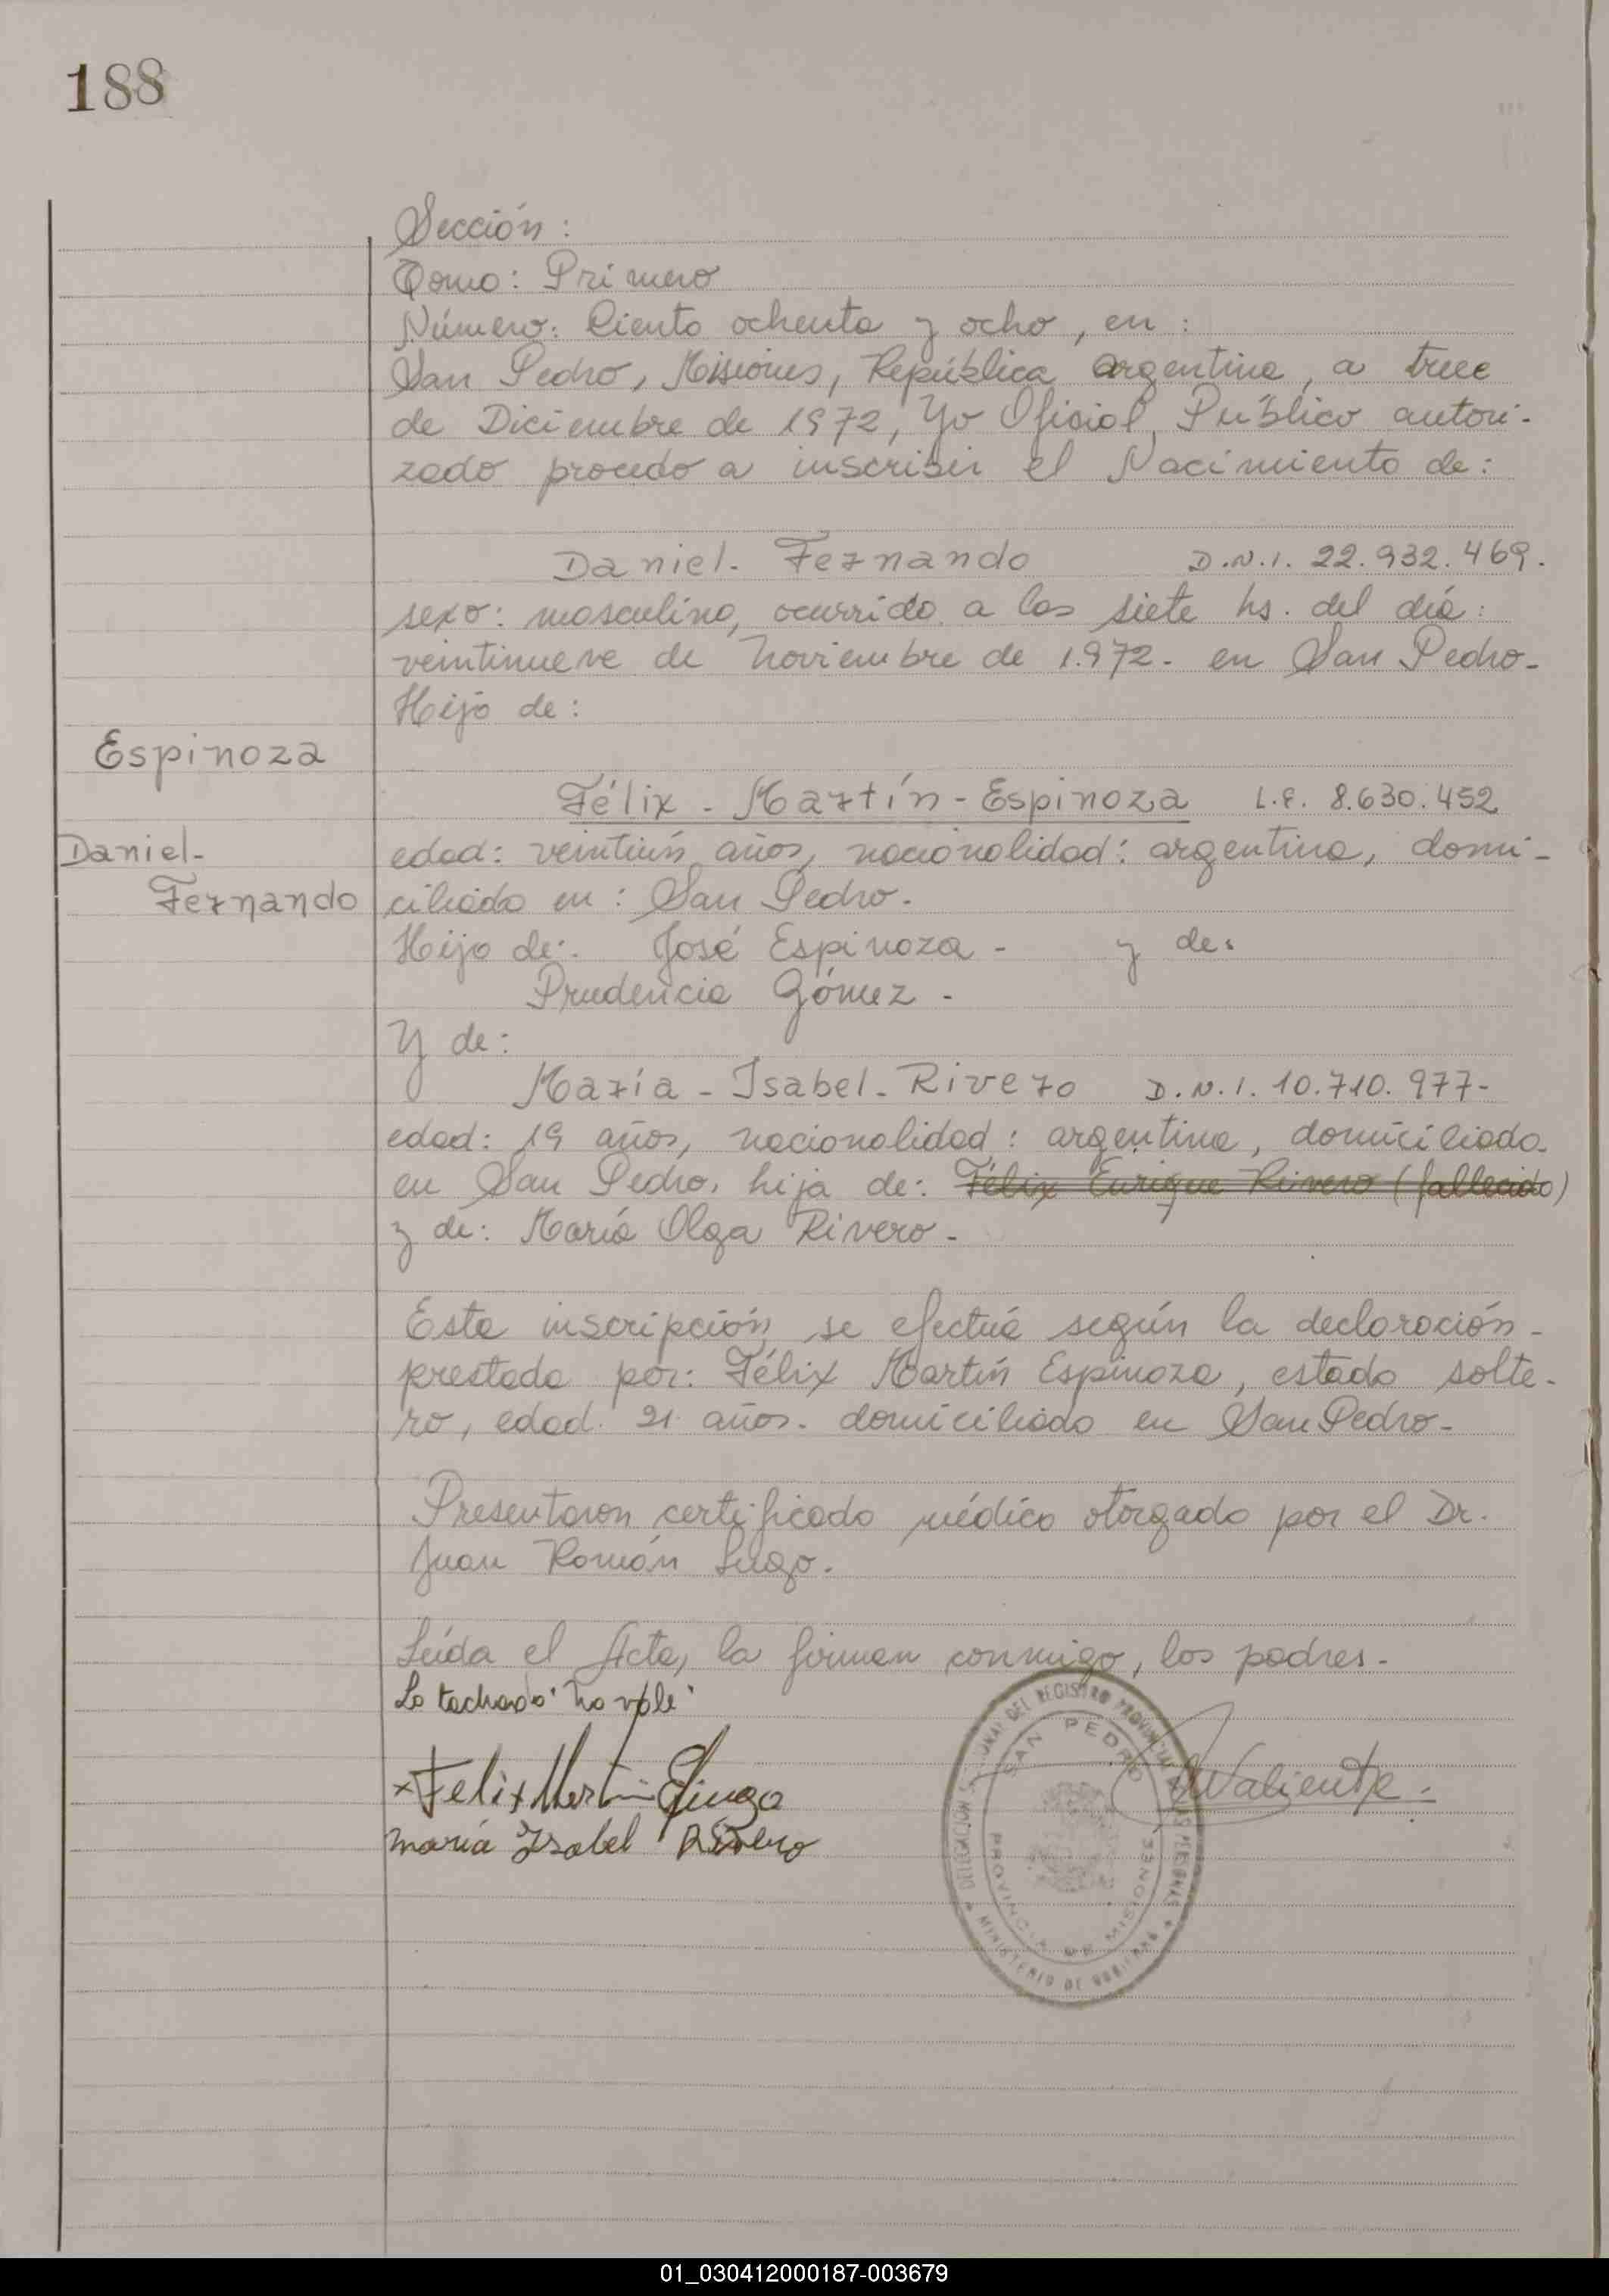 188
Sección:
Tomo: Primero
Número: Ciento ochenta y ocho, en:
San Pedro, Misiones, República argentina, a trece
de Diciembre de 1972, Yo Oficial Público autori-
zado procedo a inscribir el Nacimiento de:
Daniel- Fernando D.N.I. 22.932.469.
sexo: masculino, ocurrido a las siete hs. del día:
veintinueve de noviembre de 1.972- en San Pedro-
Hijo de:
Espinoza
Félix - Martín - Espinoza L.E. 8.630.452
Daniel-
edad: veintiún años, nacionalidad: argentina, domi-
Fernando
ciliado en: San Pedro-
Hijo de: José Espinoza - y de:
Prudencia Gómez -
Y de:
María - Isabel - Rivero D.N.I. 10.710.977-
edad: 19 años, nacionalidad: argentina, domiciliada
en San Pedro, hija de: Félix Enrique Rivero (fallecido)
y de: María Olga Rivero -
Esta inscripción se efectúa según la declaración-
prestada por: Félix Martín Espinoza, estado solte-
ro, edad. 21 años- domiciliado en San Pedro-
Presentaron certificado médico otorgado por el Dr.
Juan Román Lugo.
Leída el Acta, la firman conmigo, los padres-
Lo tachado "no vale"
x Felix Martin Espinoza
María Isabel Rivero
Valiente
DELEGACIÓN DEL REGISTRO PROVINCIAL DE LAS PERSONAS
SAN PEDRO
PROVINCIA DE MISIONES
MINISTERIO DE GOBIERNO
01_030412000187-003679